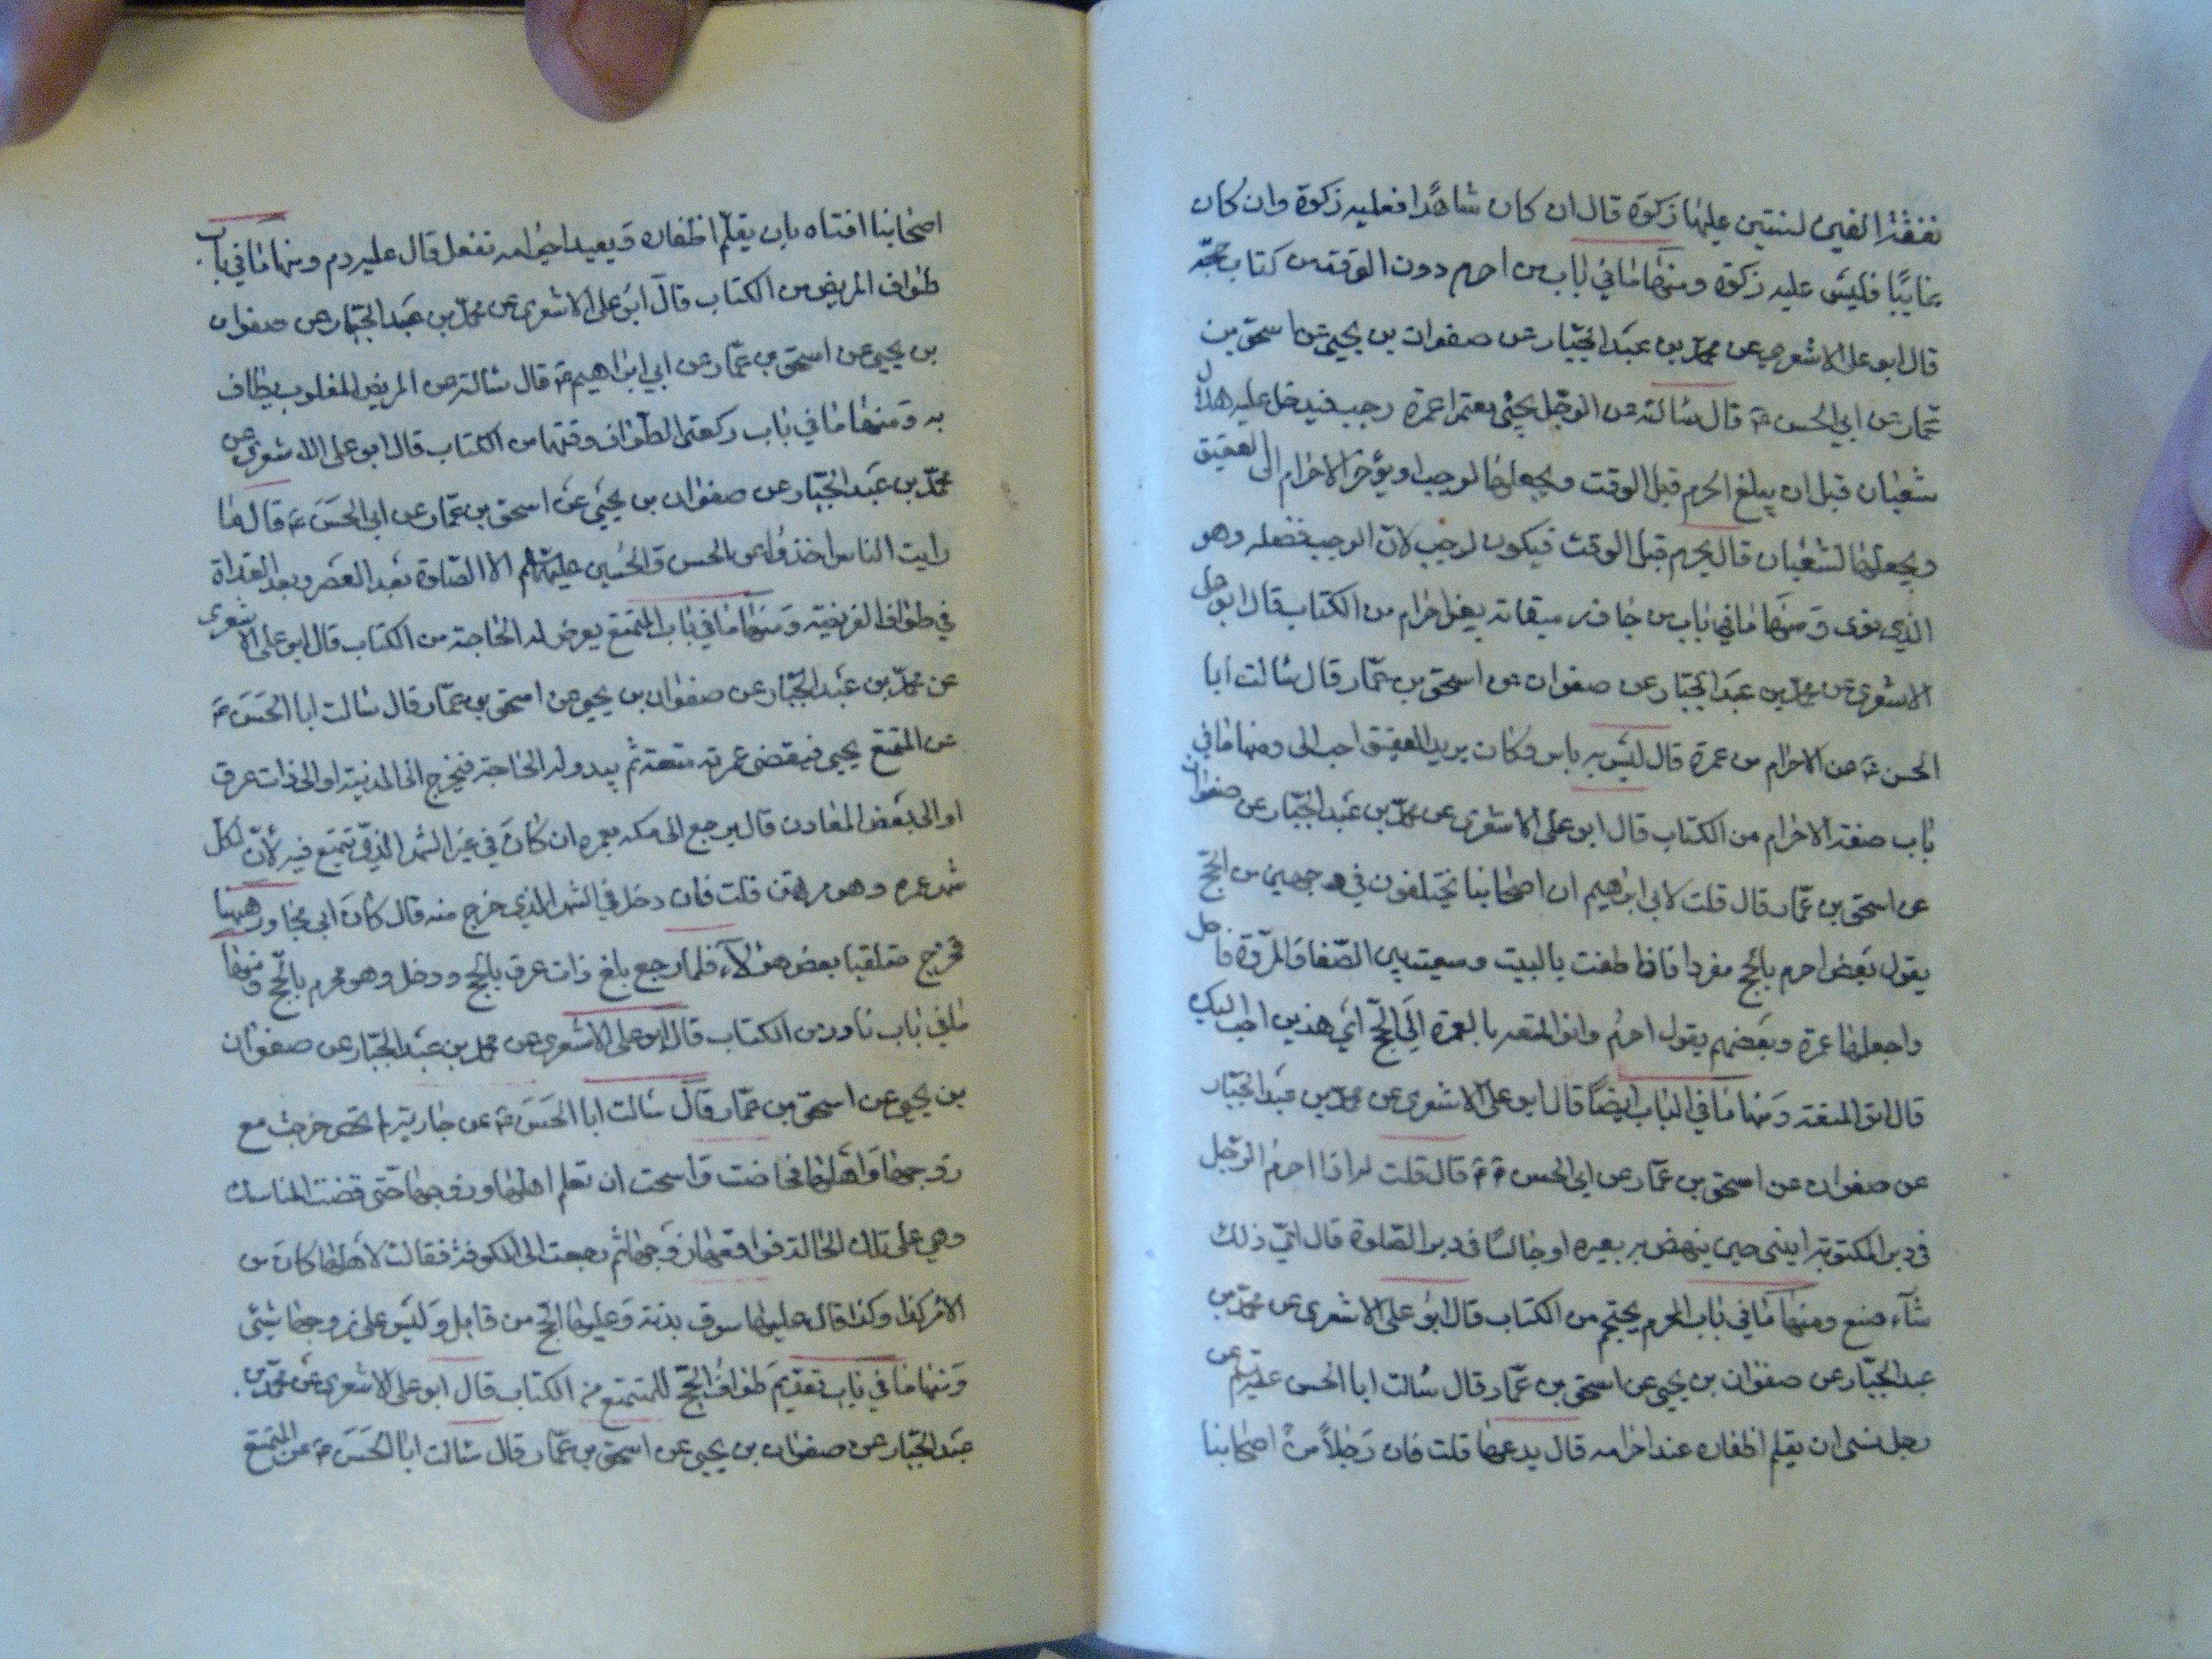 نفقة الفين لسنتين عليها زكوة قال ان كان شاهدا فعليه زكوة وان كان
غايبا فليس عليه زكوة ومنها ما في باب من احرم دون الوقت من كتاب حجه
قال ابو علي الاشعري عن محمد بن عبد الجبار عن صفوان بن يحيى عن اسحق بن
عمار عن ابي الحسن ع قال سالته عن الرجل يجئ معتمرا عمرة رجب فيدخل عليه هلال
شعبان قبل ان يبلغ الحرم قبل الوقت ويجعلها لرجب او يؤخر الاحرام الى العقيق
ويجعلها لشعبان قال يحرم قبل الوقت فيكون لرجب لان لرجب فضله وهو
الذي نوى ومنها ما في باب من جاوز ميقاته بغير احرام من الكتاب قال ابو علي
الاشعري عن محمد بن عبد الجبار عن صفوان عن اسحق بن عمار قال سالت ابا
الحسن ع عن الاحرام من عمرة قال ليس به باس وكان بريد العقيق احب الى ومنها ما في
باب صفة الاحرام من الكتاب قال ابو علي الاشعري عن محمد بن عبد الجبار عن صفوان
عن اسحق بن عمار قال قلت لابي ابراهيم ان اصحابنا يختلفون في وجهين من الحج
يقول بعض احرم بالحج مفردا فاذا طفت بالبيت وسعيت بين الصفا والمروة فاحل
واجعلها عمرة وبعضهم يقول احرم وانو المتعة بالعمرة الى الحج اي هذين احب اليك
قال انو المتعة ومنها ما في الباب ايضا قال ابو علي الاشعري عن محمد بن عبد الجبار
عن صفوان عن اسحق بن عمار عن ابي الحسن ع قال قلت له اذا احرم الرجل
في دبر المكتوبة ايلبي حين ينهض به بعيره او جالسا في دبر الصلوة قال اي ذلك
شآء صنع ومنها ما في باب المحرم يحتجم من الكتاب قال ابو علي الاشعري عن محمد بن
عبد الجبار عن صفوان بن يحيى عن اسحق بن عمار قال سالت ابا الحسن عليه السلم عن
رجل نسى ان يقلم اظفاره عند احرامه قال يدعها قلت فان رجلا من اصحابنا
اصحابنا افتاه بان يقلم اظفاره ويعيد احرامه ففعل قال عليه دم ومنها ما في باب
طواف المريض من الكتاب قال ابو علي الاشعري عن محمد بن عبد الجبار عن صفوان
بن يحيى عن اسحق بن عمار عن ابي ابراهيم ع قال سالته عن المريض المغلوب يطاف
به ومنها ما في باب ركعتى الطواف وقتهما من الكتاب قال ابو علي الاشعري عن
محمد بن عبد الجبار عن صفوان بن يحيى عن اسحق بن عمار عن ابي الحسن ع قال ما
رايت الناس اخذوا عن الحسن والحسين عليهما السلم الا الصلوة بعد العصر وبعد الغداة
في طواف الفريضة ومنها ما في باب المتمتع يعرض له الحاجة من الكتاب قال ابو علي الاشعري
عن محمد بن عبد الجبار عن صفوان بن يحيى عن اسحق بن عمار قال سالت ابا الحسن ع
عن المتمتع يجيى فيقضى عمرته متعة ثم يبدو له الحاجة فيخرج الى المدينة او الى ذات عرق
او الى بعض المعادن قال يرجع الى مكه بعمره ان كان في غير الشهر الذي تمتع فيه لان لكل
شهر عمره وهو مرتهن قلت فان دخل في الشهر الذي خرج منه قال كان ابي مجاورا ههنا
فخرج متلقيا بعض هؤلآء فلما رجع بلغ ذات عرق بالحج ودخل وهو محرم بالحج ومنها
ما في باب نادر من الكتاب قال ابو علي الاشعري عن محمد بن عبد الجبار عن صفوان
بن يحيى عن اسحق بن عمار قال سالت ابا الحسن ع عن جارية لم تحض خرجت مع
زوجها واهلها فحاضت واستحت ان تعلم اهلها وزوجها حتى قضت المناسك
وهي على تلك الحالة فواقعها زوجها ثم رجعت الى الكوفة فقالت لاهلها كان من
الامر كذا وكذا قال عليها سوق بدنة وعليها الحج من قابل وليس على زوجها شيئ
ومنها ما في باب تقديم طواف الحج للمتمتع من الكتاب قال ابو علي الاشعري عن محمد بن
عبد الجبار عن صفوان بن يحيى عن اسحق بن عمار قال سالت ابا الحسن ع عن المتمتع